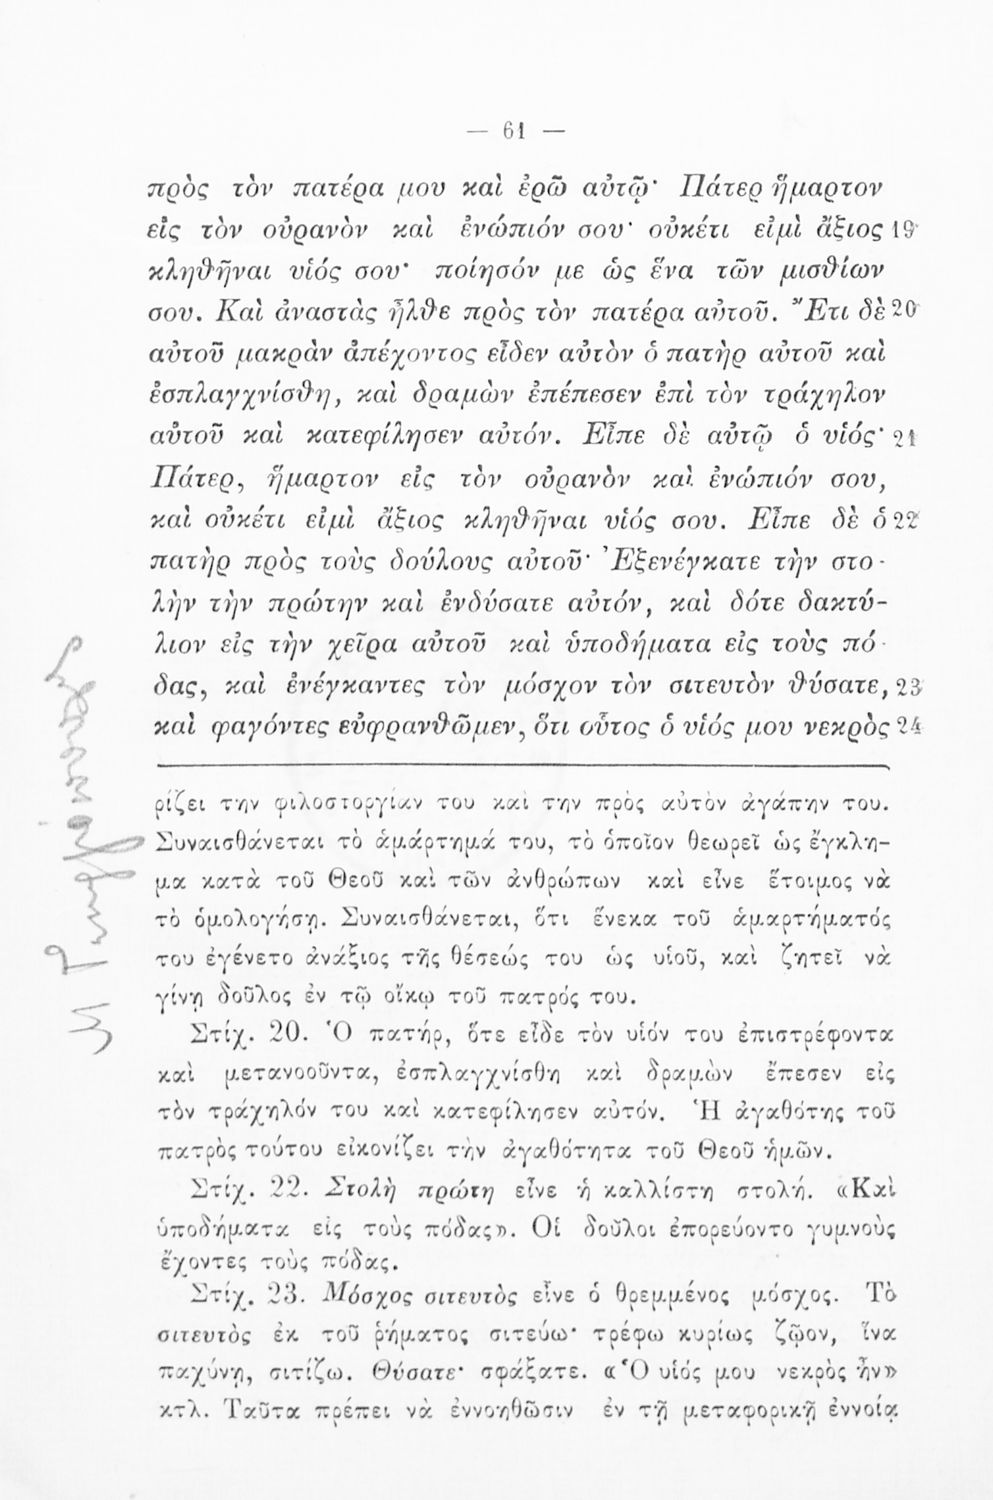 — 61 —
πρὸς τὸν πατέρα μου καὶ ἐρῶ αὐτῷ· Πάτερ ἥμαρτον
εἰς τὸν οὐρανὸν καὶ ἐνώπιόν σου· οὐκέτι εἰμὶ ἄξιος 19
κληθῆναι υἱός σου· ποίησόν με ὡς ἕνα τῶν μισθίων
σου. Καὶ ἀναστὰς ἦλθε πρὸς τὸν πατέρα αὐτοῦ. Ἔτι δὲ 20
αὐτοῦ μακρὰν ἀπέχοντος εἶδεν αὐτὸν ὁ πατὴρ αὐτοῦ καὶ
ἐσπλαγχνίσθη, καὶ δραμὼν ἐπέπεσεν ἐπὶ τὸν τράχηλον
αὐτοῦ καὶ κατεφίλησεν αὐτόν. Εἶπε δὲ αὐτῷ ὁ υἱός· 21
Πάτερ, ἥμαρτον εἰς τὸν οὐρανὸν καὶ ἐνώπιόν σου,
καὶ οὐκέτι εἰμὶ ἄξιος κληθῆναι υἱός σου. Εἶπε δὲ ὁ 22
πατὴρ πρὸς τοὺς δούλους αὐτοῦ· Ἐξενέγκατε τὴν στο-
λὴν τὴν πρώτην καὶ ἐνδύσατε αὐτόν, καὶ δότε δακτύ-
λιον εἰς τὴν χεῖρα αὐτοῦ καὶ ὑποδήματα εἰς τοὺς πό-
δας, καὶ ἐνέγκαντες τὸν μόσχον τὸν σιτευτὸν θύσατε, 23
καὶ φαγόντες εὐφρανθῶμεν, ὅτι οὗτος ὁ υἱός μου νεκρὸς 24
ρίζει την φιλοστοργίαν του και την πρὸς αὐτὸν ἀγάπην του.
Συναισθάνεται τὸ ἁμάρτημά του, τὸ ὁποῖον θεωρεῖ ὡς ἔγκλη-
μα κατὰ τοῦ Θεοῦ καὶ τῶν ἀνθρώπων καὶ εἶνε ἕτοιμος νὰ
τὸ ὁμολογήσῃ. Συναισθάνεται, ὅτι ἕνεκα τοῦ ἁμαρτήματός
του ἐγένετο ἀνάξιος τῆς θέσεώς του ὡς υἱοῦ, καὶ ζητεῖ νὰ
γίνῃ δοῦλος ἐν τῷ οἴκῳ τοῦ πατρός του.
Στίχ. 20. Ὁ πατήρ, ὅτε εἶδε τὸν υἱόν του ἐπιστρέφοντα
καὶ μετανοοῦντα, ἐσπλαγχνίσθη καὶ δραμὼν ἔπεσεν εἰς
τὸν τράχηλόν του καὶ κατεφίλησεν αὐτόν. Ἡ ἀγαθότης τοῦ
πατρὸς τούτου εἰκονίζει τὴν ἀγαθότητα τοῦ Θεοῦ ἡμῶν.
Στίχ. 22. Στολὴ πρώτη εἶνε ἡ καλλίστη στολή. «Καὶ
ὑποδήματα εἰς τοὺς πόδας». Οἱ δοῦλοι ἐπορεύοντο γυμνοὺς
ἔχοντες τοὺς πόδας.
Στίχ. 23. Μόσχος σιτευτὸς εἶνε ὁ θρεμμένος μόσχος. Τὸ
σιτευτὸς ἐκ τοῦ ῥήματος σιτεύω· τρέφω κυρίως ζῷον, ἵνα
παχύνῃ, σιτίζω. Θύσατε· σφάξατε. «Ὁ υἱός μου νεκρὸς ἦν»
κτλ. Ταῦτα πρέπει νὰ ἐννοηθῶσιν ἐν τῇ μεταφορικῇ ἐννοίᾳ